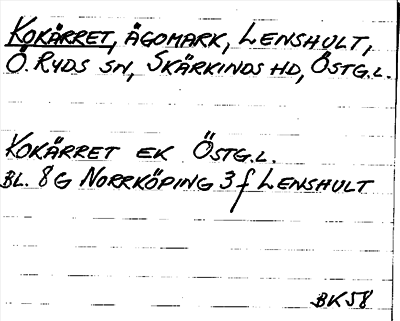 KOKÄRRET, ÄGOMARK, LENSHULT,
Ö. RYDS SN, SKÄRKINDS HD, ÖSTG.L.
KOKÄRRET EK ÖSTG.L.
BL. 8G NORRKÖPING 3f LENSHULT
BK58